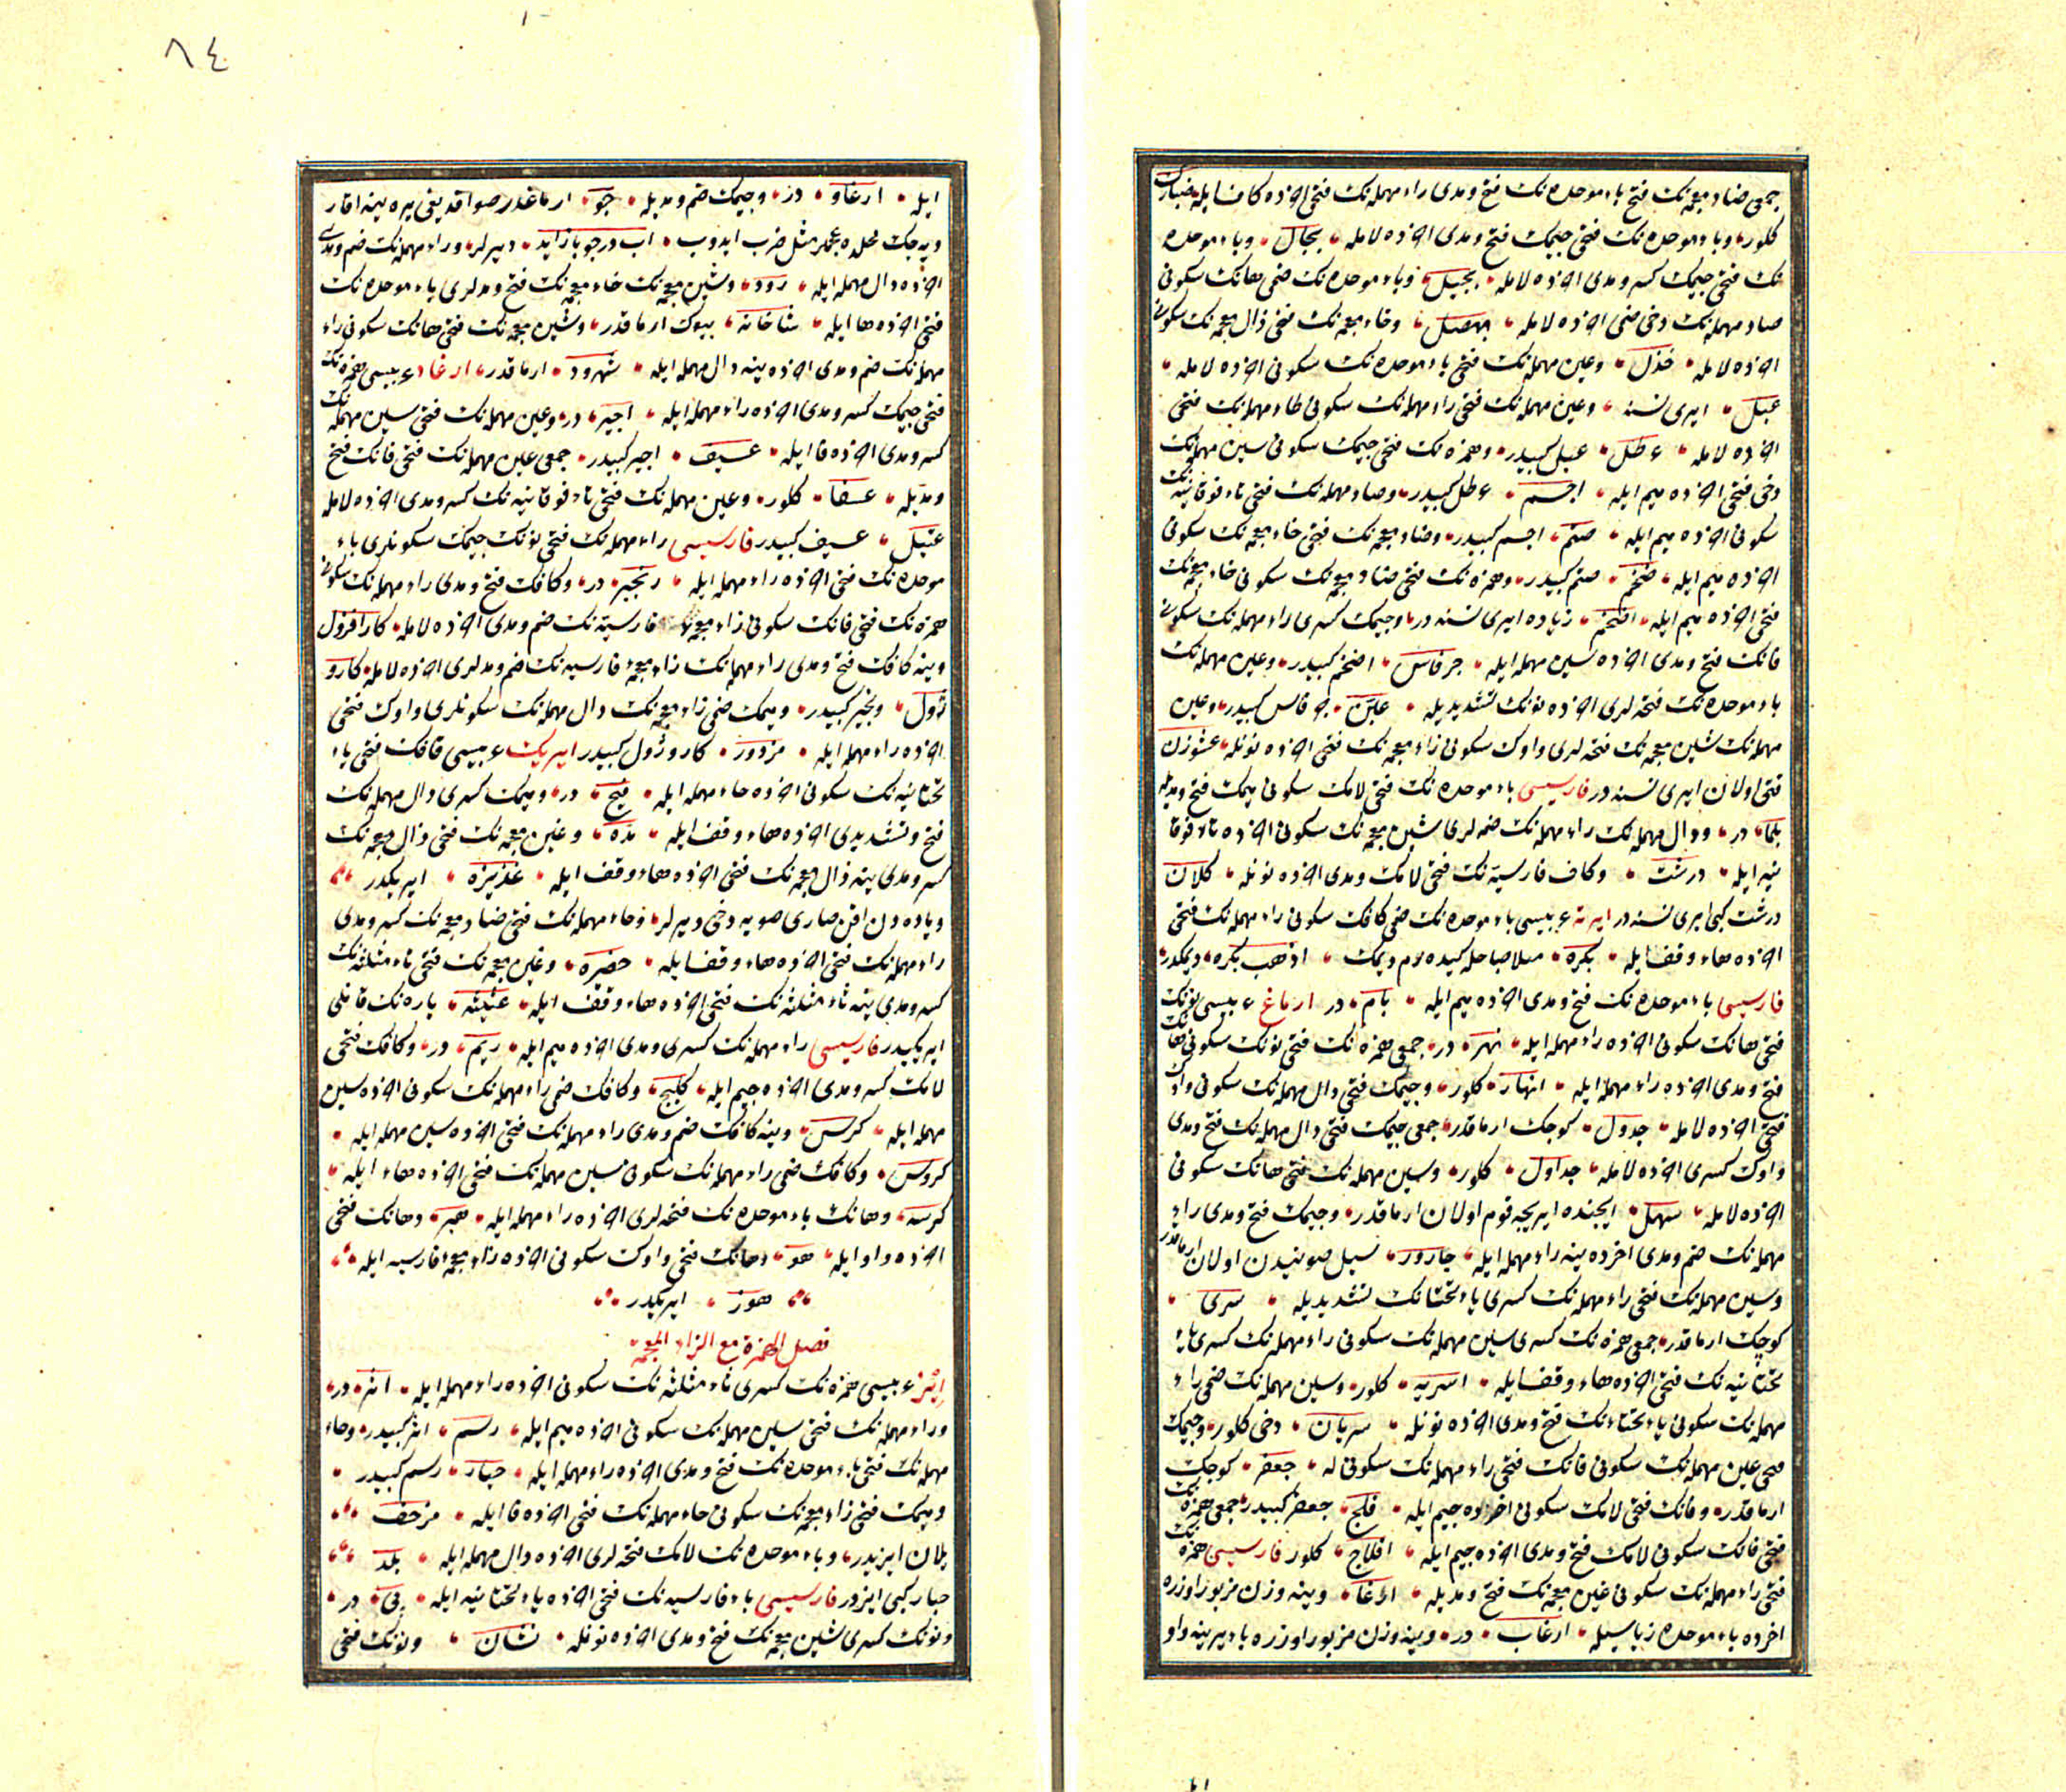 جمعی ضاد معجمه‌نک فتح باء موحده‌نک فتح و مدی راء مهمله‌نک فتحی اخرده کاف ایله ضبارک
کلور و باء موحده‌نک فتحی جیمک فتح و مدی اخرده لامله بجال و باء موحده
نک فتحی جیمک کسر و مدی اخرده لامله بجیل و باء موحده‌نک ضمی هانک سکونی
صاد مهمله‌نک دخی ضمی اخرده لامله بهصل و خاء معجمه‌نک فتحی ذال معجمه‌نک سکونی
اخرده لامله خذل و عین مهمله‌نک فتحی باء موحده‌نک سکونی اخرده لامله
عبل ایری نسنه و عین مهمله‌نک فتحی راء مهمله‌نک سکونی طاء مهمله‌نک فتحی
اخرده لامله عرطل عبل کبیدر و همزه‌نک فتحی جیمک سکونی سین مهمله‌نک
دخی فتحی اخرده میم ایله اجسم عرطل کبیدر و صاد مهمله‌نک فتحی تاء فوقانیه‌نک
سکونی اخرده میم ایله صتم اجسم کبیدر و ضاد معجمه‌نک فتحی خاء معجمه‌نک سکونی
اخرده میم ایله ضخم صتم کبیدر و همزه‌نک فتحی ضاد معجمه‌نک سکونی خاء معجمه‌نک
فتحی اخرده میم ایله اضخم زیاده ایری نسنه در و جیمک کسری راء مهمله‌نک سکونی
فانک فتح و مدی اخرده سین مهمله ایله جرفاس اضخم کبیدر و عین مهمله‌نک
باء موحده‌نک فتحه لری اخرده نونک تشدیدیله عبن جرفاس کبیدر و عین
مهمله‌نک شین معجمه‌نک فتحه لری واوک سکونی زاء معجمه‌نک فتحی اخرده نونله عشوزن
قتی اولان ایری نسنه در فارسیسی باء موحده‌نک فتحی لامک سکونی میمک فتح و مدیله
بلما در و دال مهمله‌نک راء مهمله‌نک ضمه لری شین معجمه‌نک سکونی اخرده تاء فوقا
نیه ایله درشت و کاف فارسیه‌نک فتحی لامک و مدی اخرده نونله کلان
درشت کبی ایری نسنه در ایرته عربیسی باء موحده‌نک ضمی کافک سکونی راء مهمله‌نک فتحی
اخرده هاء وقف ایله بکره مثلا صباحله کیده روم دیمک اذهب بکره دیمکدر
فارسیسی باء موحده‌نک فتح و مدی اخرده میم ایله بام در ارماغ عربیسی نونک
فتحی هانک سکونی اخرده راء مهمله ایله نهر در جمعی همزه‌نک فتحی نونک سکونی هانک
فتح و مدی اخرده راء مهمله ایله انهار کلور و جیمک فتحی دال مهمله‌نک سکونی واوک
فتحی اخرده لامله جدول کوچک ارماقدر جمعی جیمک فتحی دال مهمله‌نک فتح و مدی
واوک کسری اخرده لامله جداول کلور و سین مهمله‌نک فتحی هانک سکونی
اخرده لامله سهل ایچنده ایریجه قوم اولان ارماقدر و جیمک فتح و مدی راء
مهمله‌نک ضم و مدی اخرده ینه راء مهمله ایله جارور سیل صوییندن اولان ارماقدر
و سین مهمله‌نک فتحی راء مهمله‌نک کسری یاء تحتانک تشدیدیله سری
کوچک ارماقدر جمعی همزه‌نک کسری سین مهمله‌نک سکونی راء مهمله‌نک کسری یاء
تحتانیه‌نک فتحی اخرده هاء وقف ایله اسریه کلور و سین مهمله‌نک ضمی راء
مهمله‌نک سکونی یاء تحتانک فتح و مدی اخرده نونله سریان دخی کلور و جیمک
فتحی عین مهمله‌نک سکونی فانک فتحی راء مهمله‌نک سکونی له جعفر کوچک
ارماقدر و فانک فتحی لامک سکونی اخرده جیم ایله فلج جعفر کبیدر جمعی همزه‌نک
فتحی فانک سکونی لامک فتح و مدی اخرده جیم ایله افلاج کلور فارسیسی همزه‌نک
فتحی راء مهمله‌نک سکونی غین معجمه‌نک فتح و مدیله ارغا و ینه وزن مزبور اوزره
اخرده باء موحده زیاسیله ارغاب در و ینه وزن مزبور اوزره باء یرینه واو
ایله ارغاو در و جیمک ضم و مدیله جو ارماغدر صو اقدیغی یره ینه اقار
و یه جک محلده عجملر مثل ضرب ایدوب اب در جو باز اید دیرلر و راء مهمله‌نک ضم و مدی
اخرده دال مهمله ایله رود و شین معجمه‌نک خاء معجمه‌نک فتح و مدلری باء موحده‌نک
فتحی اخرده ها ایله شاخابه بیوک ارماقدر و شین معجمه‌نک فتحی هانک سکونی راء
مهمله‌نک ضم و مدی اخرده ینه دال مهمله ایله شهرود ارماقدر ارغاد عربیسی همزه‌نک
فتحی جیمک کسر و مدی اخرده راء مهمله ایله اجیر در و عین مهمله‌نک فتحی سین مهمله‌نک
کسر و مدی اخرده فا ایله عسیف اجیر کبیدر جمعی عین مهمله‌نک فتحی فانک فتح
و مدیله عسفا کلور و عین مهمله‌نک فتحی تاء فوقانیه‌نک کسر و مدی اخرده لامله
عتیل عسیف کبیدر فارسیسی راء مهمله‌نک فتحی نونک جیمک سکونلری باء
موحده‌نک فتحی اخرده راء مهمله ایله رنجبر در و کافک فتح و مدی راء مهمله‌نک سکونی
همزه‌نک فتحی فانک سکونی زاء معجمه فارسیه‌نک ضم و مدی اخرده لامله کارافژول
و ینه کافک فتح و مدی راء مهمله‌نک زاء معجمه فارسیه‌نک ضم و مدلری اخرده لامله کارو
ژول رنجبر کبیدر و میمک ضمی زاء معجمه‌نک دال مهمله‌نک سکونلری واوک فتحی
اخرده راء مهمله ایله مزدور کاروژول کبیدر ایریک عربیسی قافک فتحی یاء
تحتانیه‌نک سکونی اخرده حاء مهمله ایله قیح در و میمک کسری دال مهمله‌نک
فتح و تشدیدی اخرده هاء وقف ایله مده و غین معجمه‌نک فتحی ذال معجمه‌نک
کسر و مدی ینه ذال معجمه‌نک فتحی اخرده هاء وقف ایله غذیذه ایریکدر
و یاره دن اقن صاری صویه دخی دیرلر و حاء مهمله‌نک فتحی ضاد معجمه‌نک کسر و مدی
راء مهمله‌نک فتحی اخرده هاء وقف ایله حضیره و غین معجمه‌نک فتحی ثاء مثلثه‌نک
کسر و مدی ینه ثاء مثلثه‌نک فتحی اخرده هاء وقف ایله غثیثه یاره‌نک قانلی
ایریکیدر فارسیسی راء مهمله‌نک کسری و مدی اخرده میم ایله ریم در و کافک فتحی
لامک کسر و مدی اخرده جیم ایله کلیج و کافک ضمی راء مهمله‌نک سکونی اخرده سین
مهمله ایله کرس و ینه کافک ضم و مدی راء مهمله‌نک فتحی اخرده سین مهمله ایله
کروس و کافک ضمی راء مهمله‌نک سکونی سین مهمله‌نک فتحی اخرده هاء ایله
کرسه و هانک باء موحده‌نک فتحه لری اخرده راء مهمله ایله هبر و هانک فتحی
اخرده واو ایله هو و هانک فتحی واوک سکونی اخرده زاء معجمه فارسیه ایله
هوژ ایریکدر
فصل الهمزة مع الزاء المعجمة
ایز عربیسی همزه‌نک کسری ثاء مثلثه‌نک سکونی اخرده راء مهمله ایله اثر در
و راء مهمله‌نک فتحی سین مهمله‌نک سکونی اخرده میم ایله رسم اثر کبیدر و حاء
مهمله‌نک فتحی باء موحده‌نک فتح و مدی اخرده راء مهمله ایله حبار رسم کبیدر
و میمک فتحی زاء معجمه‌نک سکونی حاء مهمله‌نک فتحی اخرده فا ایله مزحف
یلان ایزیدر و باء موحده‌نک لامک فتحه لری اخرده دال مهمله ایله بلد
حبار کبی ایزدر فارسیسی باء فارسیه‌نک فتحی اخرده یاء تحتانیه ایله پی در
و نونک کسری شین معجمه‌نک فتح و مدی اخرده نونله نشان و نونک فتحی